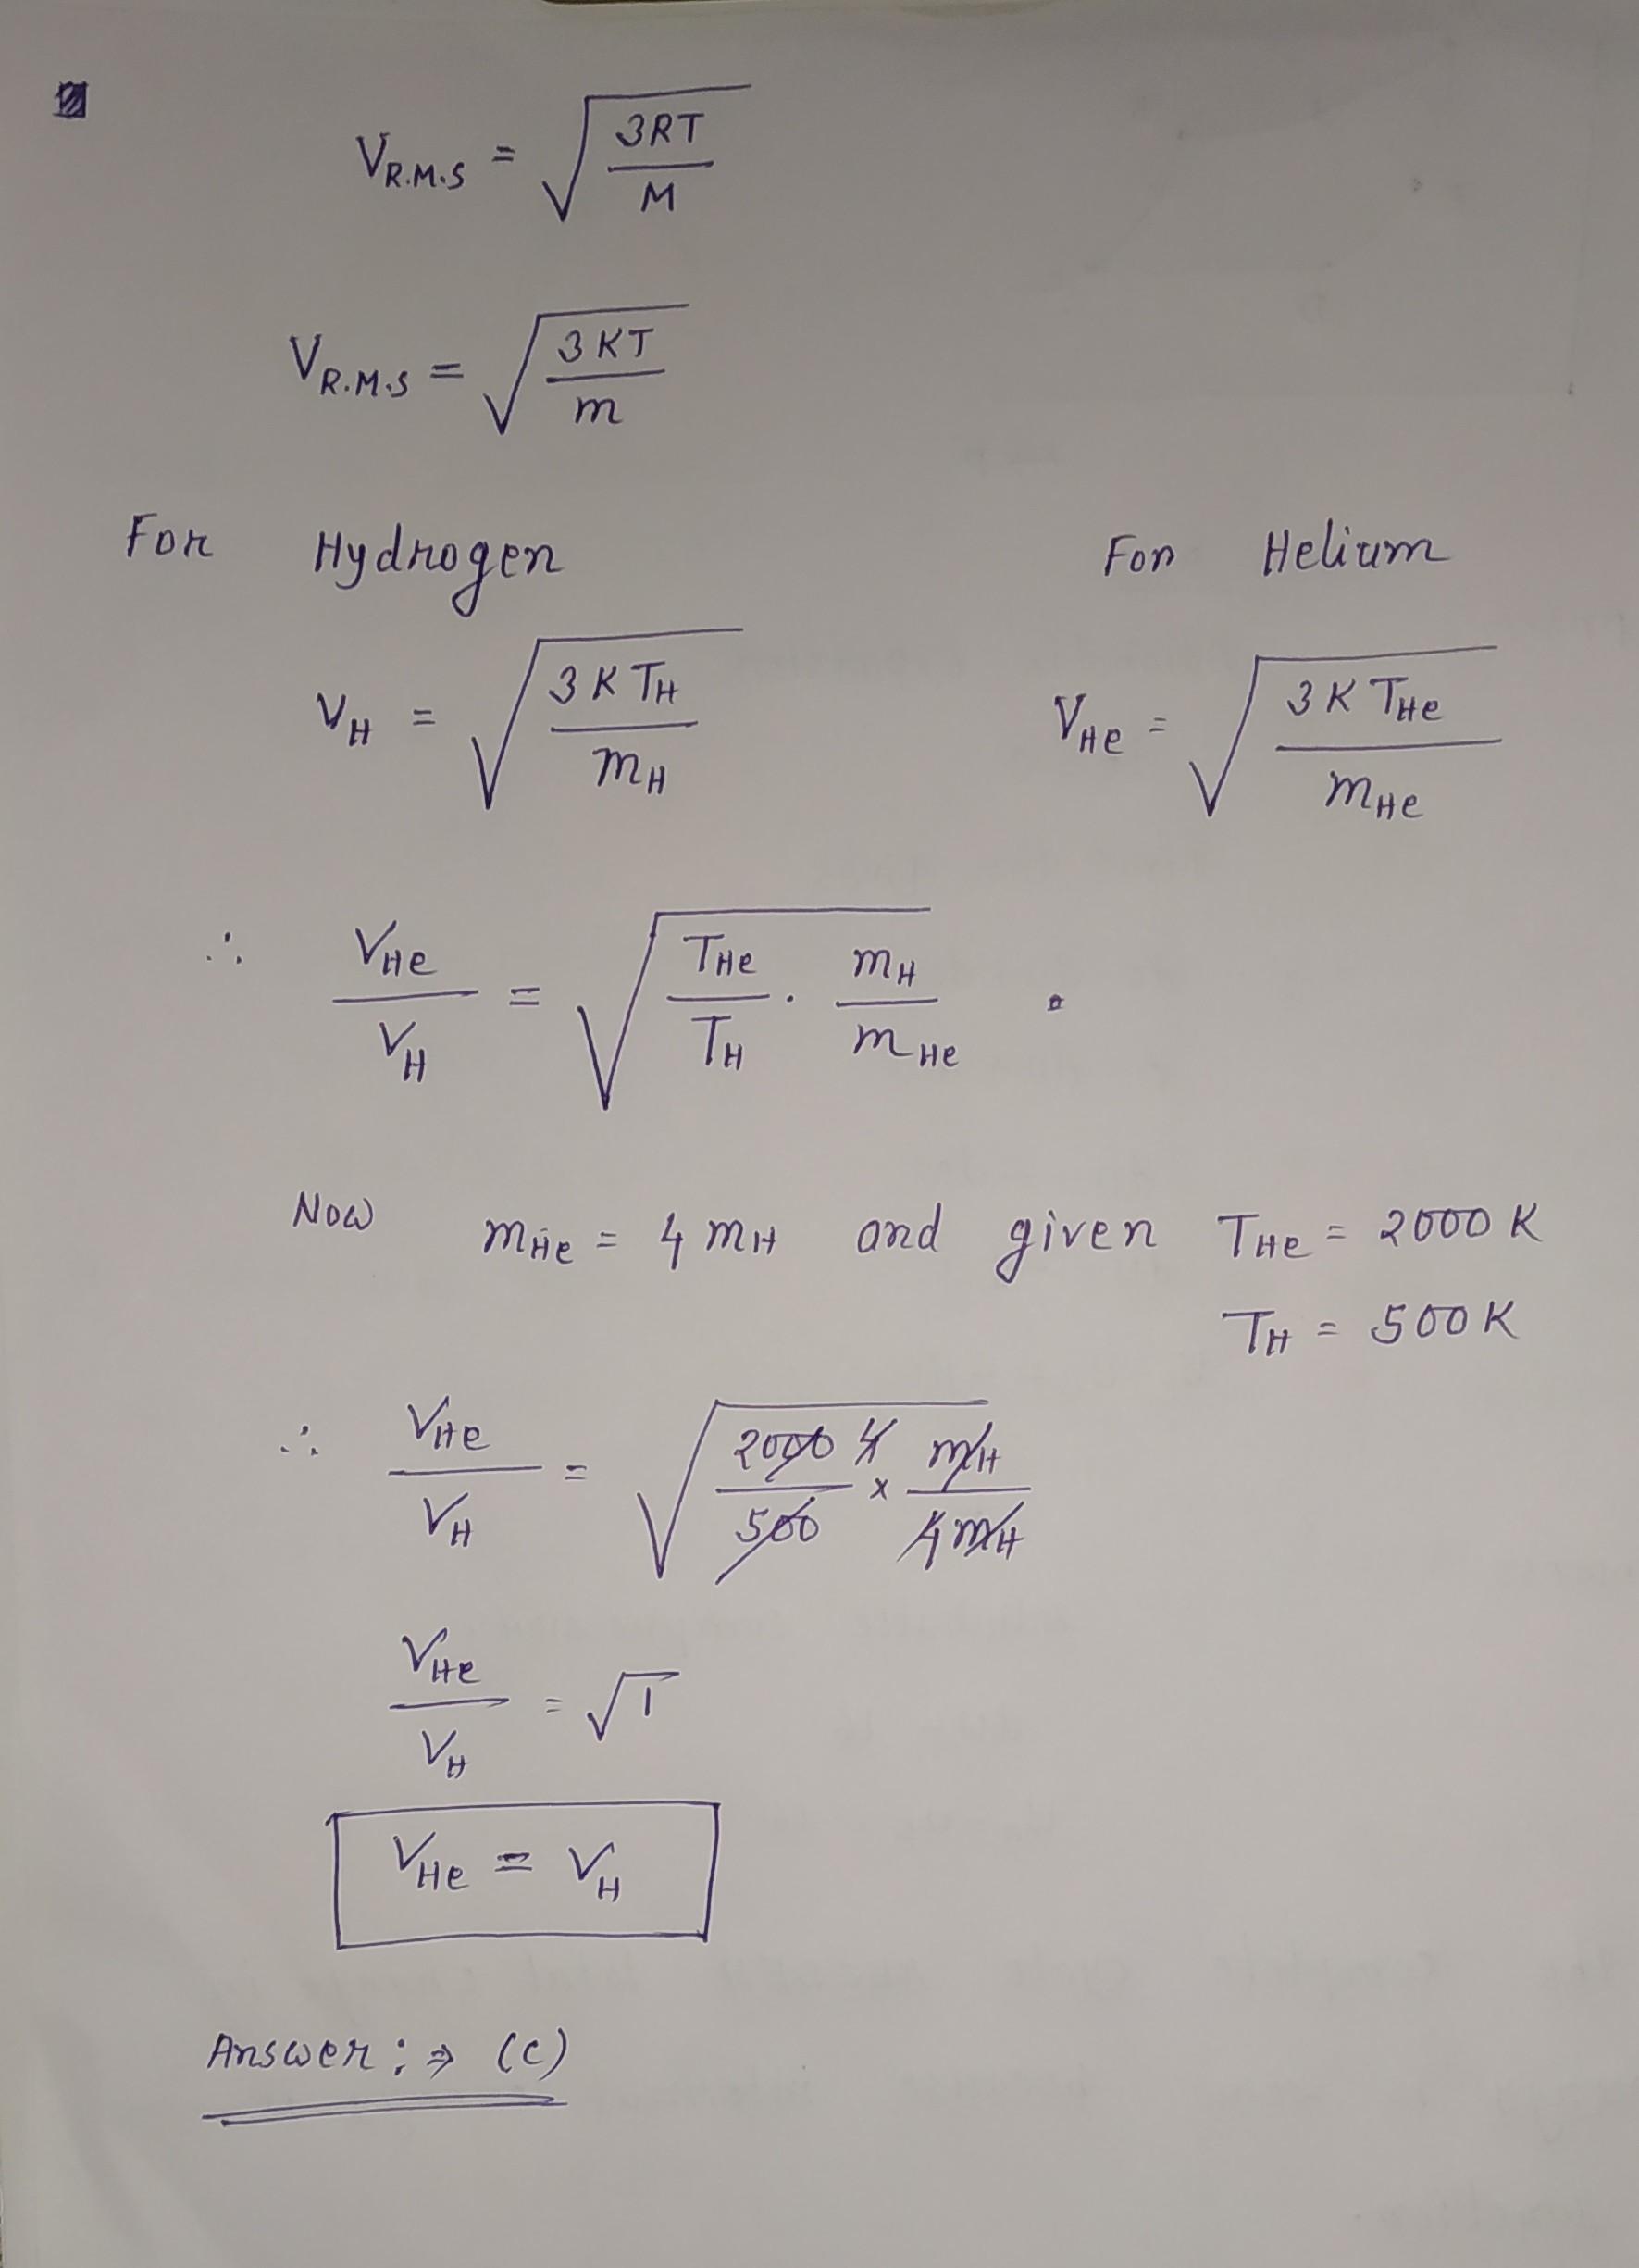 V_R.M.S = √(3RT/M)
V_R.M.S = √(3KT/m)
For Hydrogen For Helium
V_H = √(3KT_H/m_H) V_He = √(3KT_He/m_He)
∴ V_He/V_H = √(T_He/T_H · m_H/m_He)
Now m_He = 4 m_H and given T_He = 2000 K
T_H = 500K
∴ V_He/V_H = √(2000 4/500 × m_H/4m_H)
V_He/V_H = √1
V_He = V_H
Answer : ⇒ (c)